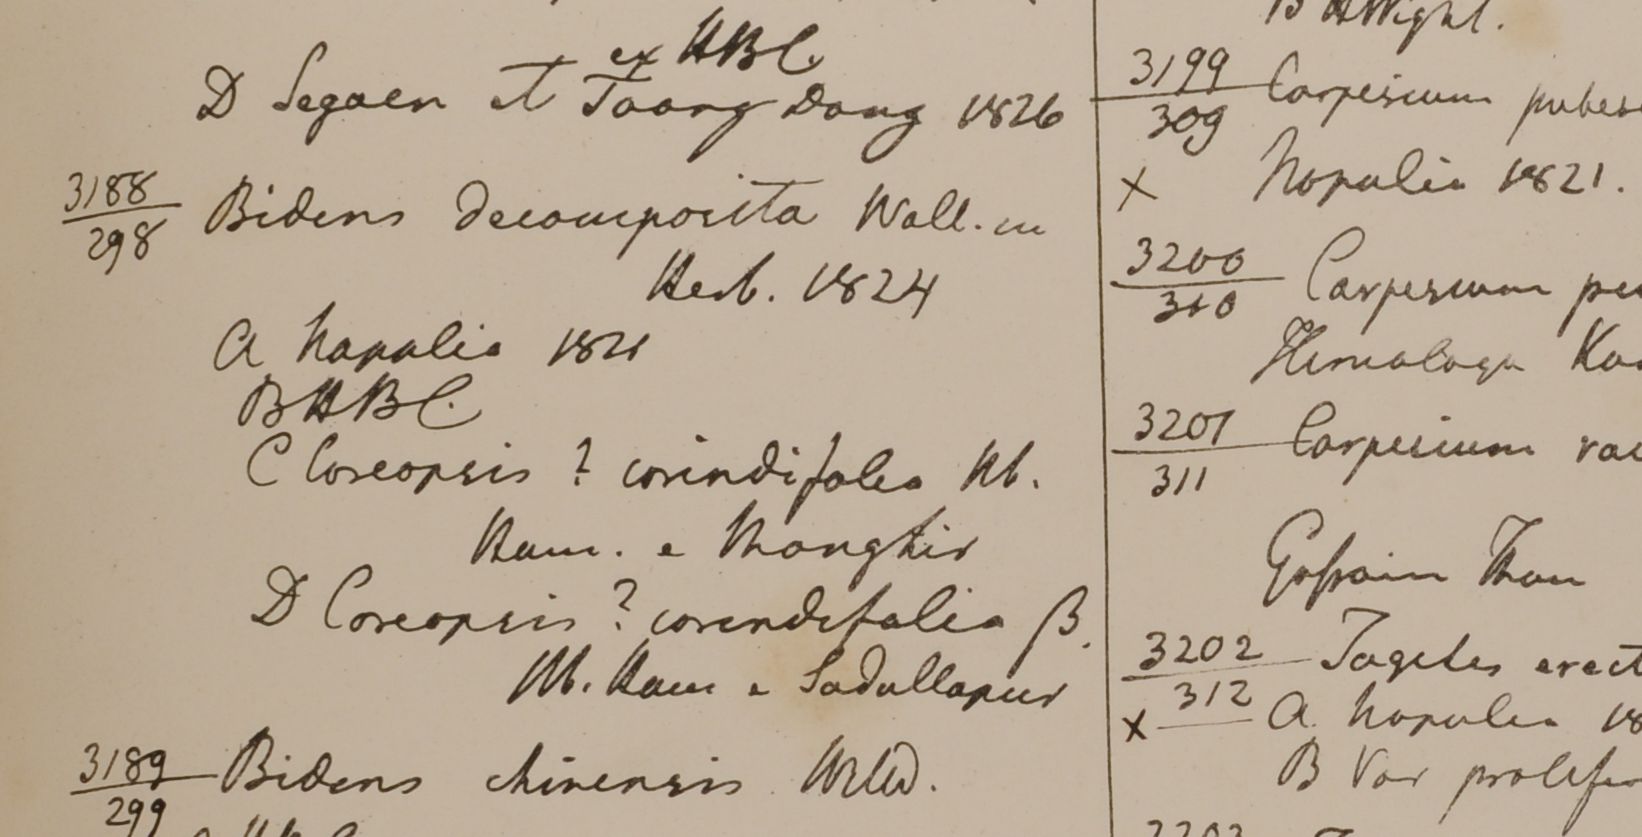 ex HBC.
D Segaen et Taong Dong 1826
3188
298
Bidens decomposita Wall. in
Herb. 1824
A Napalia 1821
B HBC.
C Coreopsis ? corindifolia Hb.
Ham. e Monghir
D Coreopsis ? corindifolia β.
Hb. Ham e Sadullapur
3189
299
Bidens chinensis Willd.
B HWight.
3199
309
Carpesium pubes
Napalia 1821.
x
3200
310
Carpesium pe
Himalaya Ka
3201
311
Carpesium rac
Gossain Than
3202
312
Tagetes erect
x
A Napalia 18
B Var prolifer
3203